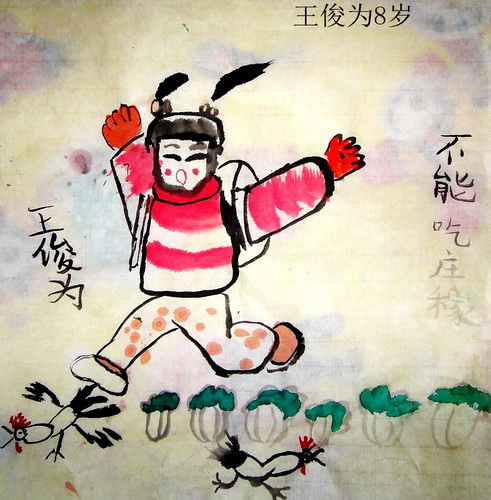 王俊为8岁
不能吃庄稼
王俊为